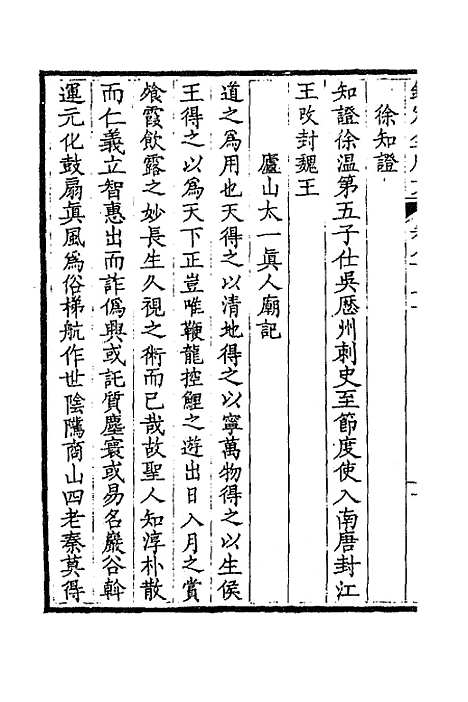 徐知證
知證徐温第五子仕吳厯州刺史至節度使入南唐封江
王改封魏王
廬山太一眞人廟記
道之爲用也天得之以清地得之以寧萬物得之以生侯
王得之以爲天下正豈唯鞭龍控鯉之遊出日入月之賞
飱霞飲露之妙長生久視之術而已哉故聖人知淳朴散
而仁義立智惠出而詐僞興或託質塵寰或易名巖谷斡
運元化鼓扇眞風爲俗梯航作世陰隲商山四老秦莫得